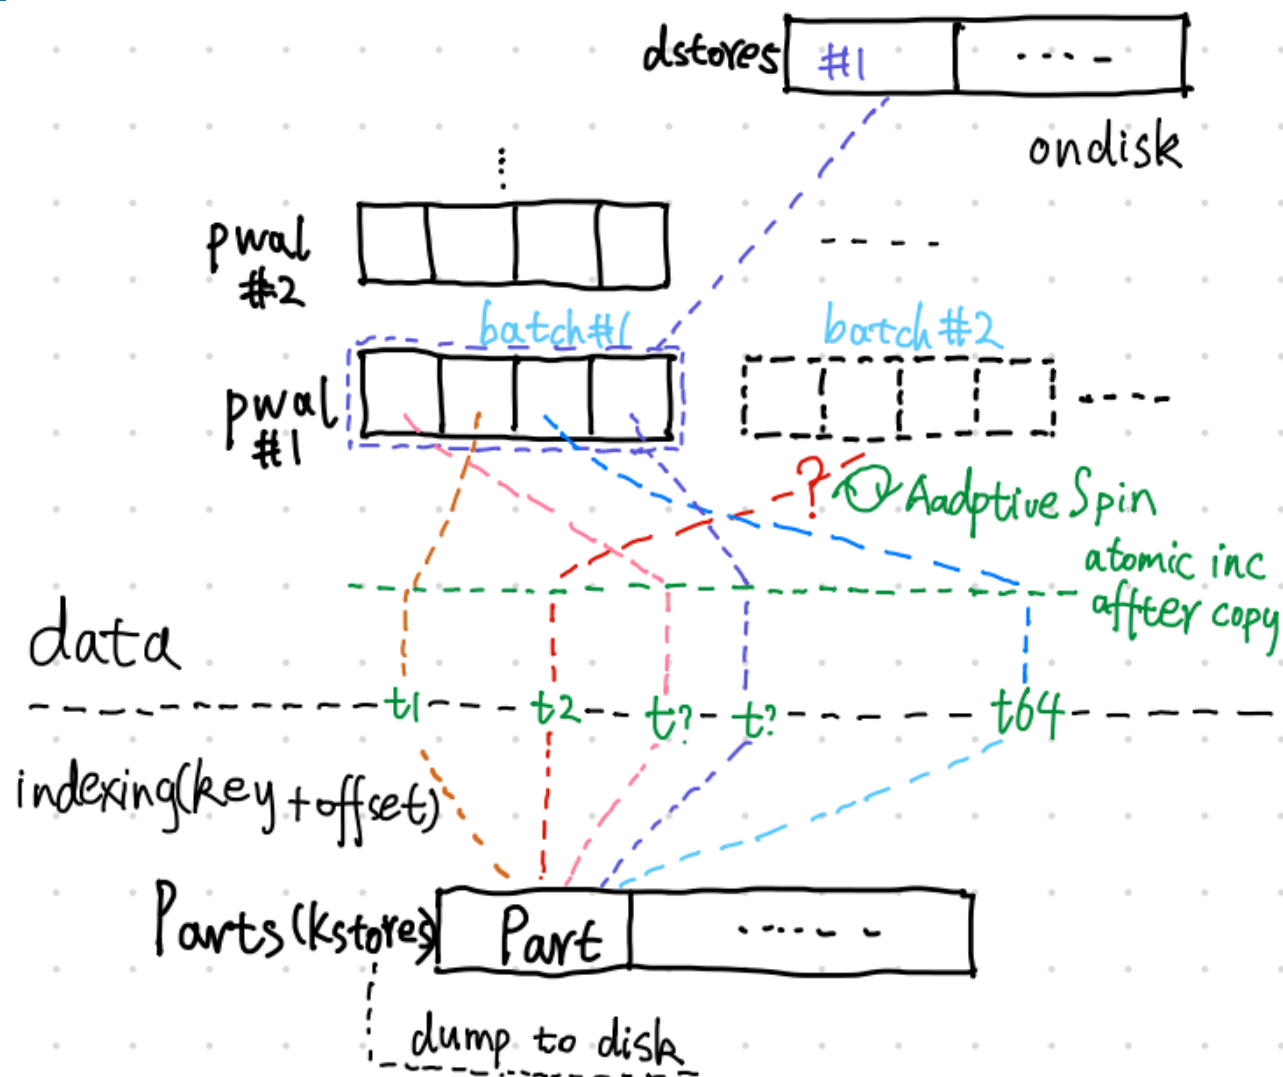 dstores #1
ondisk
pwal
#2
batch#1
batch#2
pwal
#1
? Aadptive Spin
atomic inc
affter copy
data
t1 t2 t? t? t64
indexing(key+offset)
Parts(kstores) Part
dump to disk